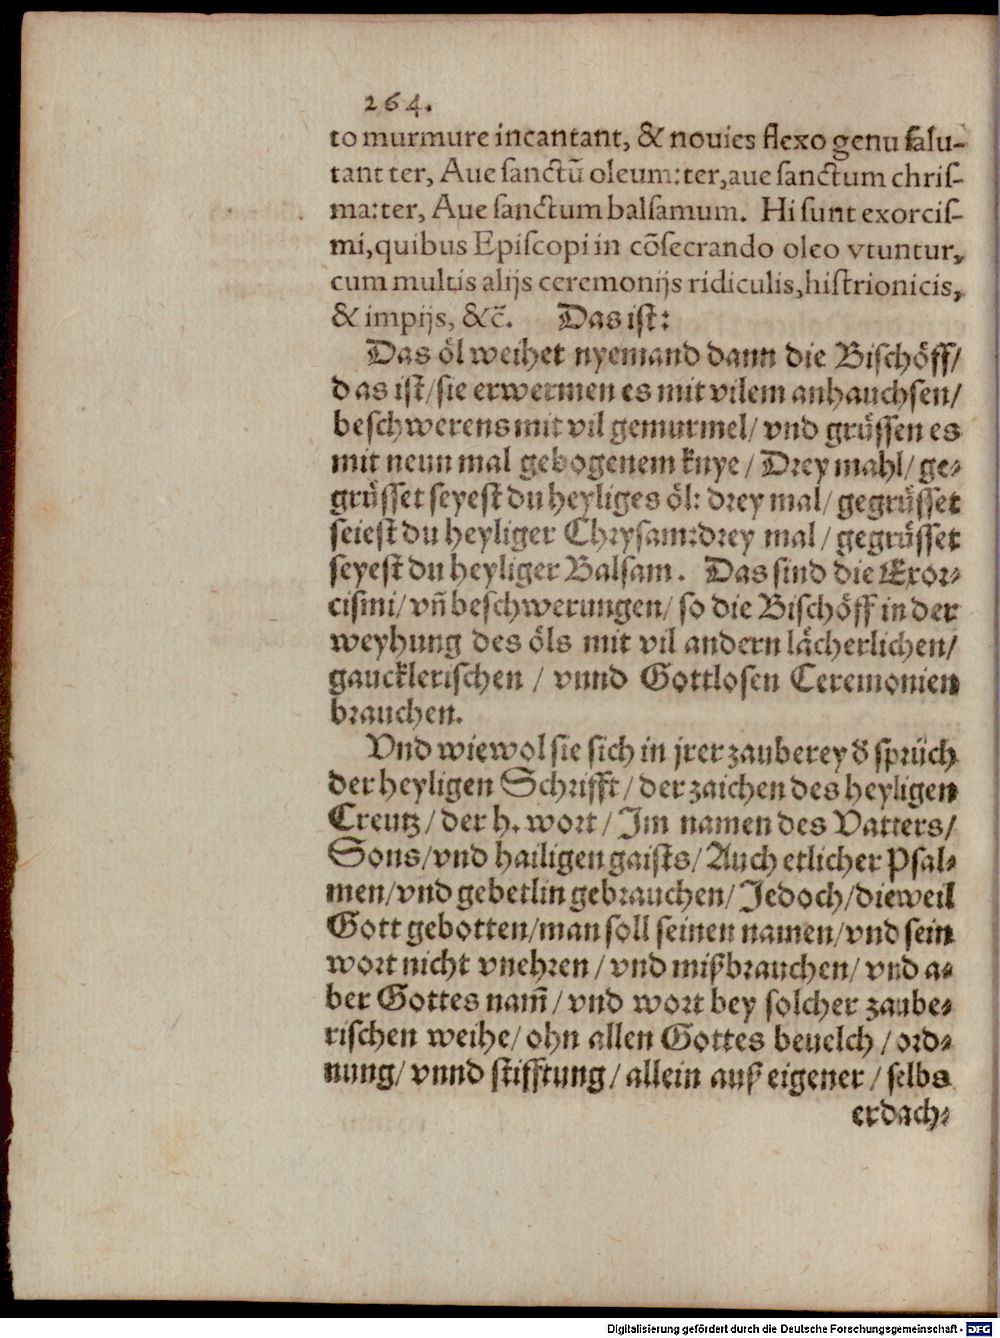 264.
to murmure incantant, & nouies flexo genu salu-
tant ter, Aue ſanctū oleum:ter,aue ſanctum chriſ-
ma:ter, Aue ſanctum balſamum. Hi ſunt exorciſ-
mi,quibus Epiſcopi in cōſecrando oleo vtuntur,
cum multis alijs ceremonijs ridiculis,hiſtrionicis,
& impijs, &c̄. Das iſt:
Das öl weihet nyemand dann die Biſchöff/
das iſt/ſie erwermen es mit vilem anhauchſen/
beſchwerens mit vil gemurmel/ vnd grüſſen es
mit neun mal gebogenem knye/ Drey mahl/ ge-
grüſſet ſeyeſt du heyliges öl: drey mal/ gegrüſſet
ſeieſt du heyliger Chryſam:drey mal/ gegrüſſet
ſeyeſt du heyliger Balſam. Das ſind die Exor-
ciſmi/ vn̄ beſchwerungen/ ſo die Biſchöff in der
weyhung des öls mit vil andern lächerlichen/
gaucklerischen / vnnd Gottloſen Ceremonien
brauchen.
Vnd wiewol ſie ſich in jrer zauberey d̄ ſprüch
der heyligen Schrifft/ der zaichen des heyligen
Creutz/ der h. wort/ Im namen des Vatters/
Sons/vnd hailigen gaiſts/ Auch etlicher Pſal-
men/vnd gebetlin gebrauchen/ Jedoch/dieweil
Gott gebotten/man ſoll ſeinen namen/vnd ſein
wort nicht vnehren/ vnd mißbrauchen/ vnd a-
ber Gottes nam̄/ vnd wort bey ſolcher zaube-
riſchen weihe/ ohn allen Gottes beuelch/ ord-
nung/ vnnd ſtifftung/ allein auß eigener/ ſelbs
erdach-
Digitalisierung gefördert durch die Deutsche Forschungsgemeinschaft - DFG